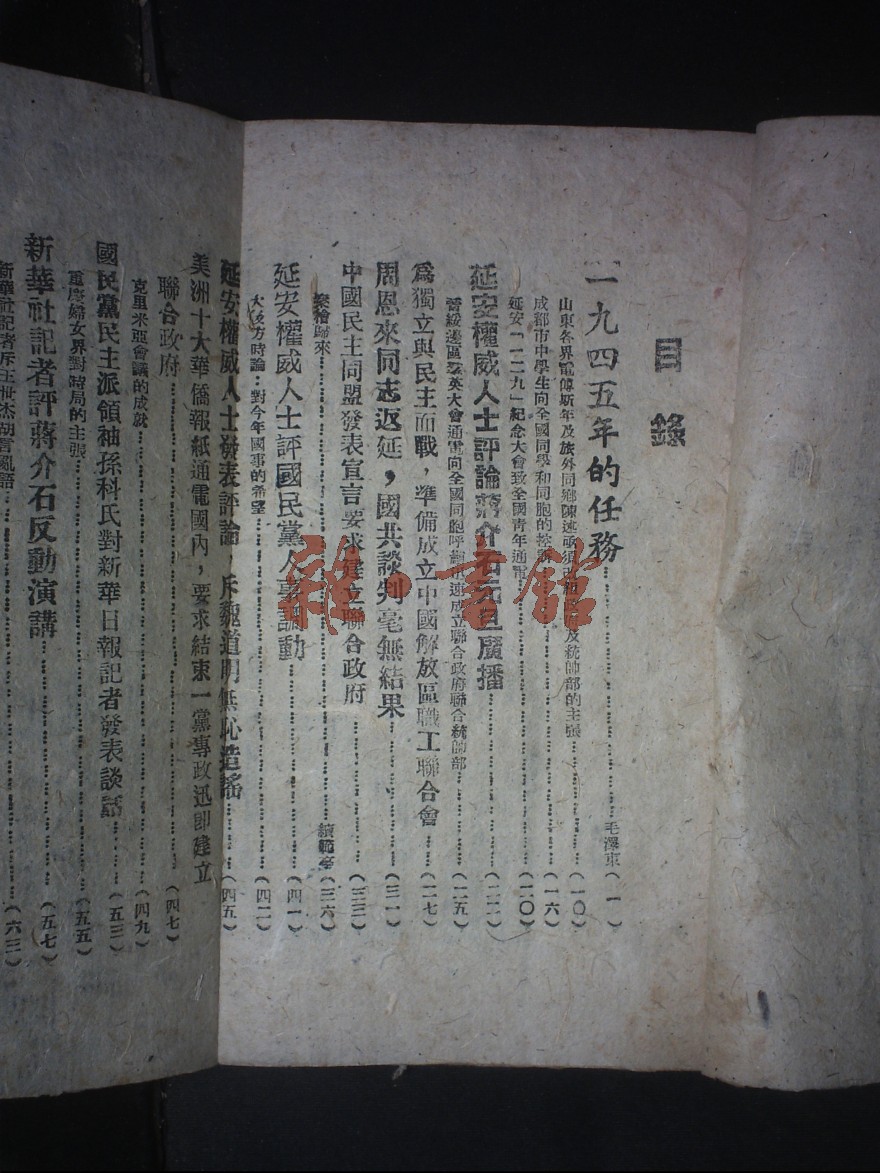 目錄
一九四五年的任務……毛澤東(一)
山東各界電傅斯年及旅外同鄉陳述 政府及統帥部的主張……(一〇)
成都市中學生向全國同學和同胞的控訴……(一六)
延安「一二九」紀念大會致全國青年通電……(二〇)
延安權威人士評論蔣介石元旦廣播……(二二)
晉綏邊區羣英大會通電向全國同胞呼籲迅速成立聯合政府聯合統帥部……(二五)
爲獨立與民主而戰,準備成立中國解放區職工聯合會……(二七)
周恩來同志返延,國共談判毫無結果……(三一)
中國民主同盟發表宣言要求建立聯合政府……(三三)
秦檜歸來……續範亭(三六)
延安權威人士評國民黨人事調動……(四一)
大後方時論:對今年國事的希望……(四二)
延安權威人士發表評論,斥魏道明無恥造謠……(四五)
美洲十大華僑報紙通電國內,要求結束一黨專政迅即建立
聯合政府……(四七)
克里米亞會議的成就……(四九)
國民黨民主派領袖孫科氏對新華日報記者發表談話……(五三)
重慶婦女界對時局的主張……(五五)
新華社記者評蔣介石反動演講……(五七)
新華社記者斥王世杰胡言亂語……(六三)
雜·書館